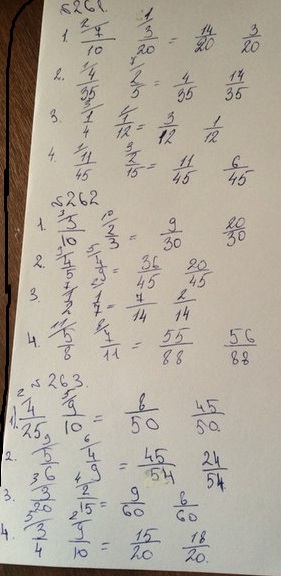 №261
1. ²7/10 ¹3/20 = 14/20 3/20
2. ¹4/35 ⁷2/5 = 4/35 14/35
3. ³1/4 ¹1/12 = 3/12 1/12
4. ¹11/45 ³2/15 = 11/45 6/45
№262
1. ³3/10 ¹⁰2/3 = 9/30 20/30
2. ⁹4/5 ⁵4/9 = 36/45 20/45
3. ⁷1/2 ²1/7 = 7/14 2/14
4. ¹¹5/8 ⁸7/11 = 55/88 56/88
№263.
1). ²4/25 ⁵9/10 = 8/50 45/50
2. ⁹5/6 ⁶4/9 = 45/54 24/54
3. ³3/20 ⁴2/15 = 9/60 8/60
4. ⁵3/4 ²9/10 = 15/20 18/20.